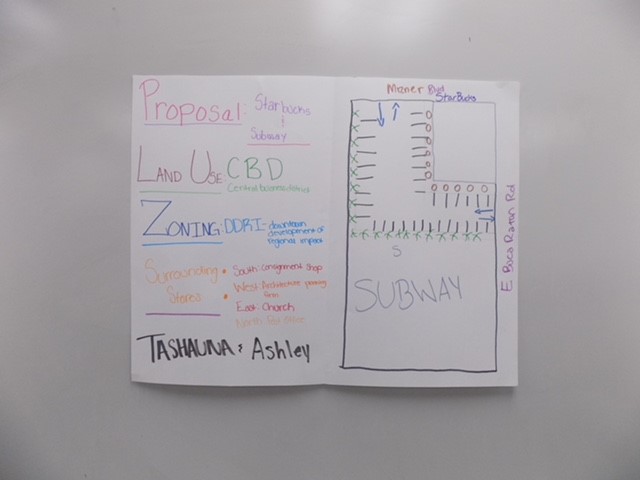 Proposal:
Starbucks
&
Subway
LAND USE CBD
Central business district
ZONING: DDRI-
downtown
development of
regional impact
Surrounding
Stores
• South- Consignment Shop
• West- Architecture
firm
East- Church
North
TASHAUNA & Ashley
Mizner Blvd
StarBucks
E Boca Raton Rd
S
SUBWAY